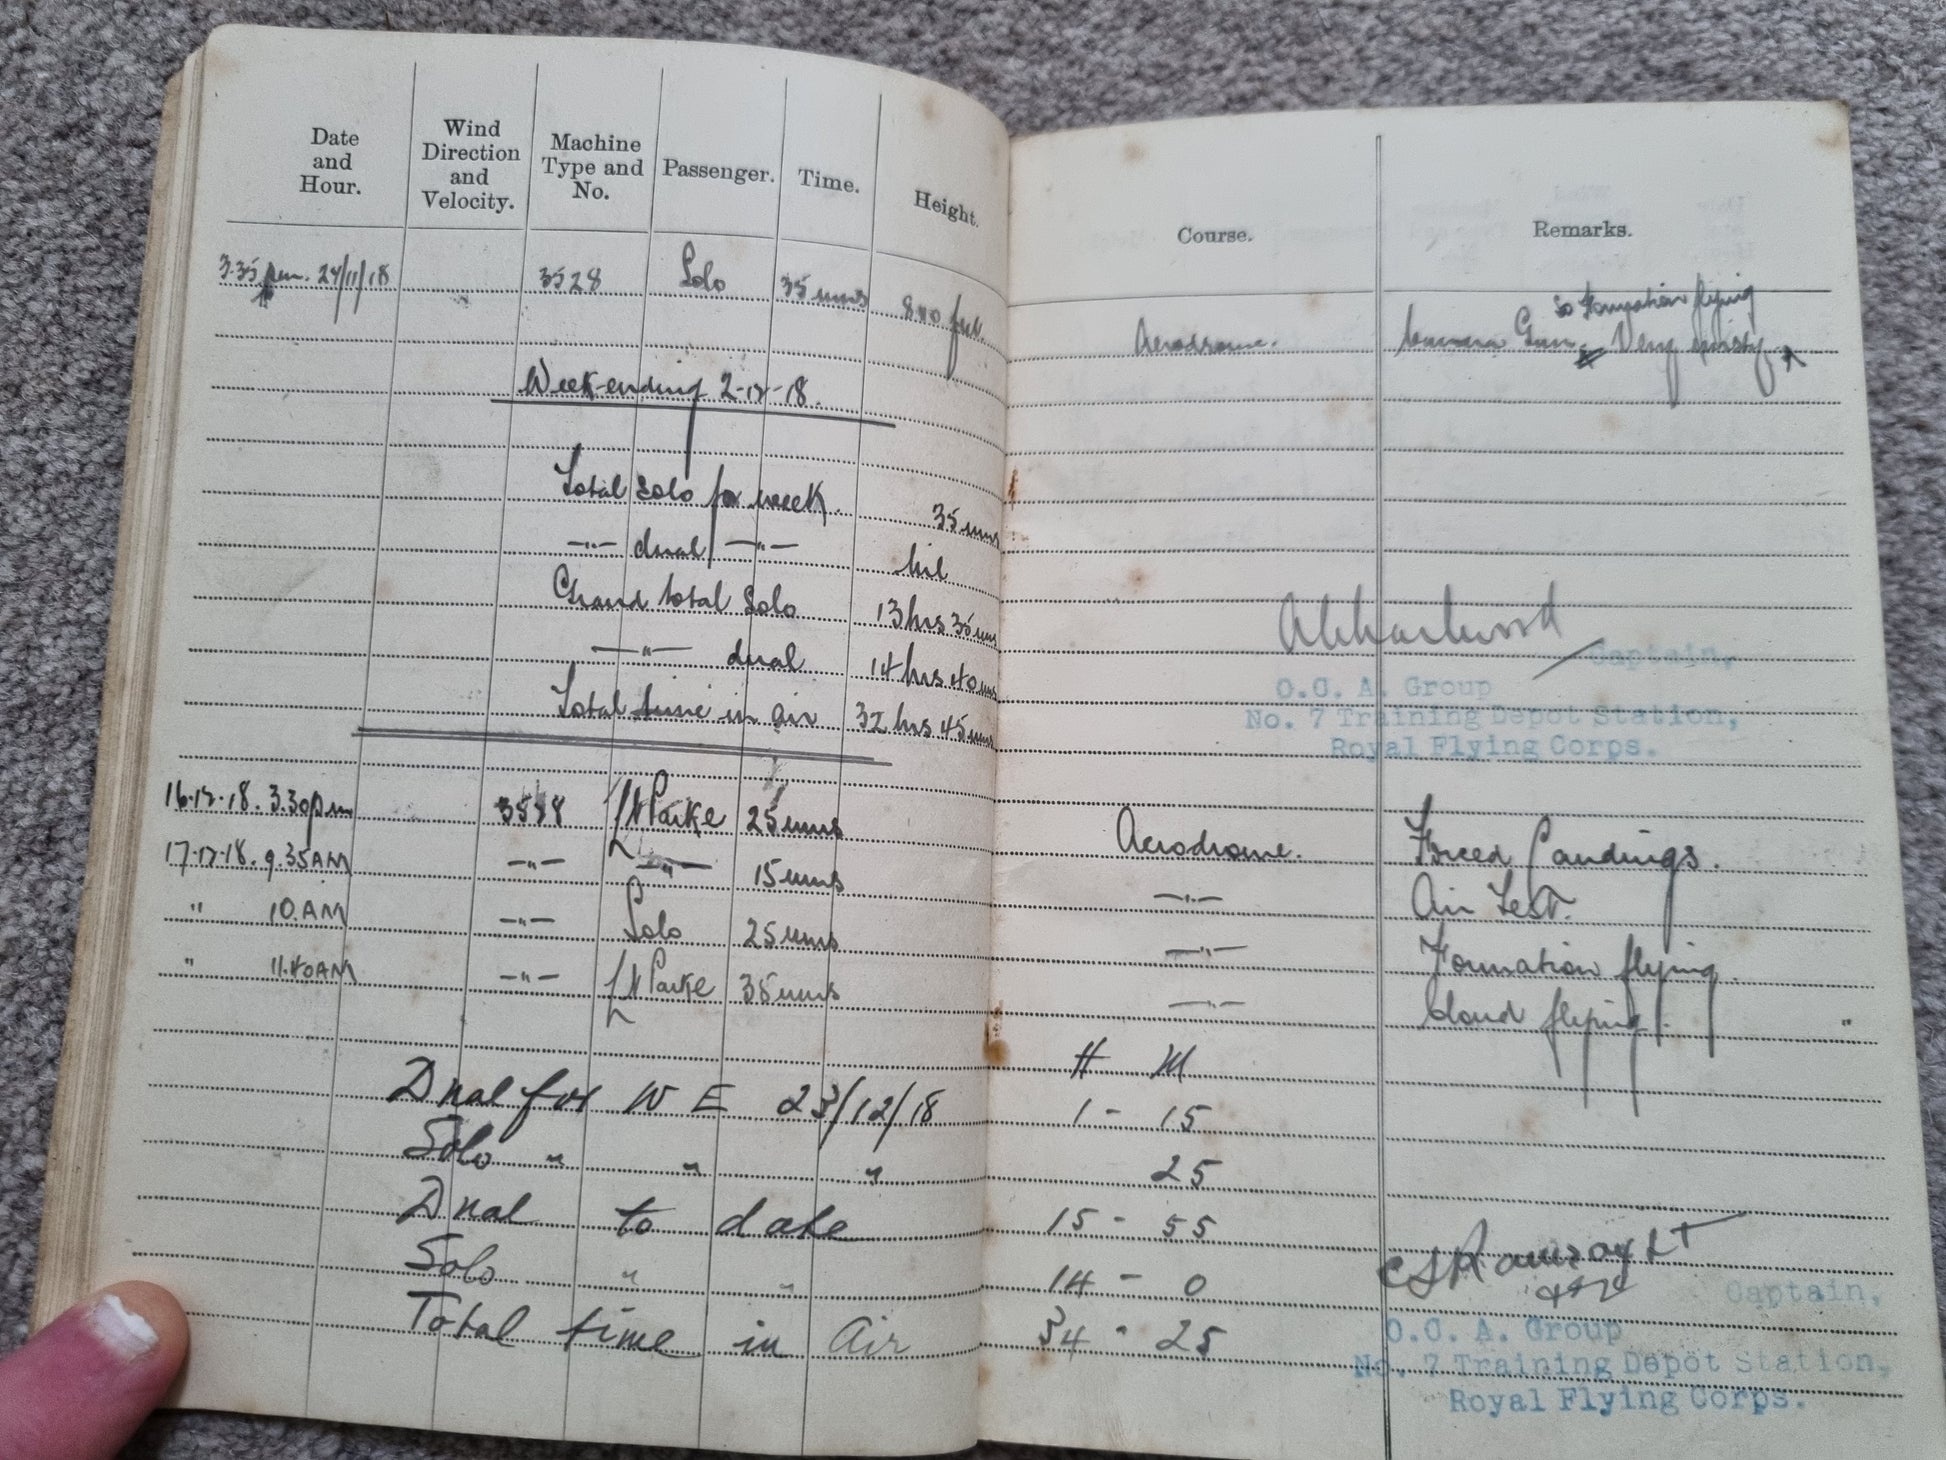 Date and Hour. Wind Direction and Velocity. Machine Type and No. Passenger. Time. Height. Course. Remarks.
3.35 pm. 29/11/18 3528 Solo 35 mns 800 feet. Aerodrome. Camera Gun. Very misty
to Formation flying
Week-ending 2-12-18.
Total Solo for week. 35 mns
—"— dual —"— nil
Grand total Solo 13 hrs 35 mns
—"— dual 14 hrs 40 mns
Total time in air 32 hrs 45 mns
Captain,
O.C. A. Group
No. 7 Training Depot Station,
Royal Flying Corps.
16.12.18. 3.30 pm 3528 Lt Parke 25 mns Aerodrome. Forced Landings.
17.12.18. 9.35 AM —"— —"— 15 mns —"— Air Test.
" 10. AM —"— Solo 25 mns —"— Formation flying.
" 11.40 AM —"— Lt Parke 35 mns —"— Cloud flying.
H M
Dual for W E 23/12/18 1 - 15
Solo " " " 25
Dual to date 15 - 55
Solo " " 14 - 0
Total time in Air 34 - 25
Ramsay Lt
Captain,
O.C. A. Group
No. 7 Training Depot Station,
Royal Flying Corps.